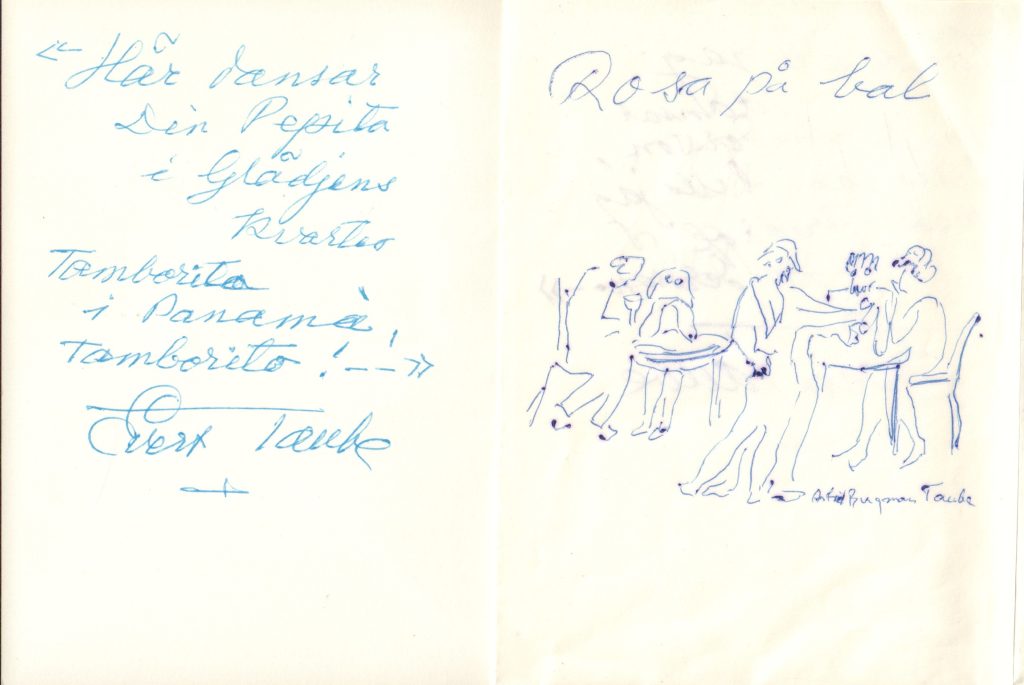 « Här dansar
Din Pepita
i Glädjens
kvarter
Tamborito
i Panamà,
Tamborito! -- »
Evert Taube
Rosa på bal
Astri Bergman Taube